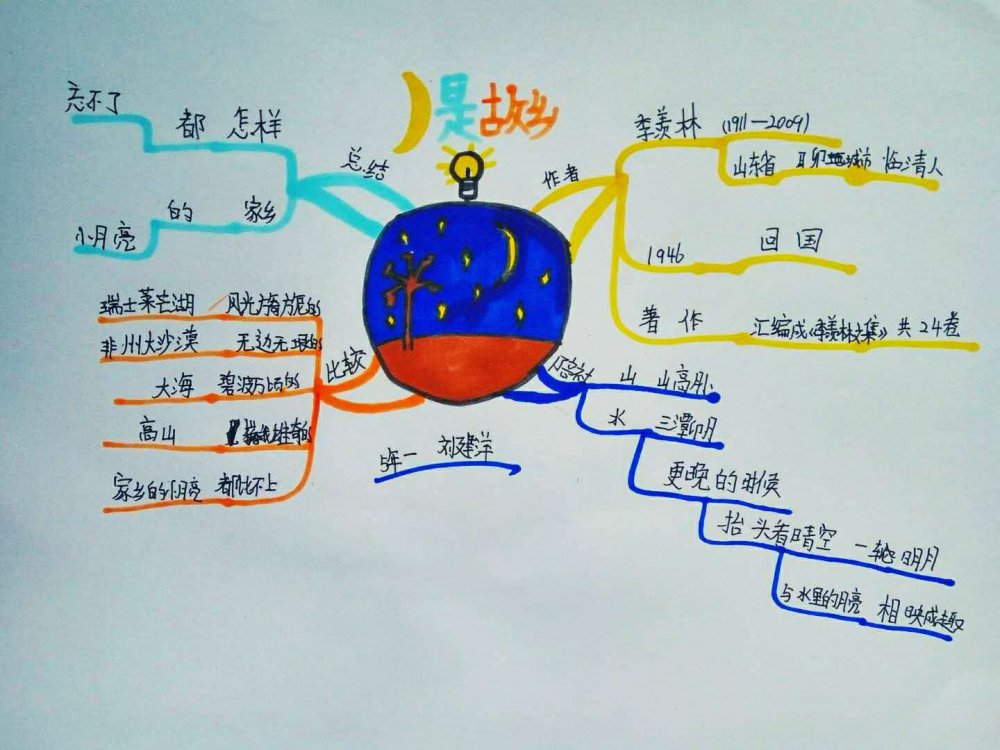 是故乡
作者
李羡林 (1911—2009)
山东省 聊城市 临清人
1946 回国
著作 汇编成《季羡林文集》共24卷
总结
都 怎样
忘不了
的 家乡
小月亮
比较
瑞士莱芒湖 风光旖旎的
非州大沙漠 无边无垠的
大海 碧波万顷的
高山 巍峨雄奇的
家乡的小月亮 都比不上
山 山高月小
水 三潭印月
更晚的时候
抬头看晴空 一轮明月
与水里的月亮 相映成趣
5年一 刘建洋